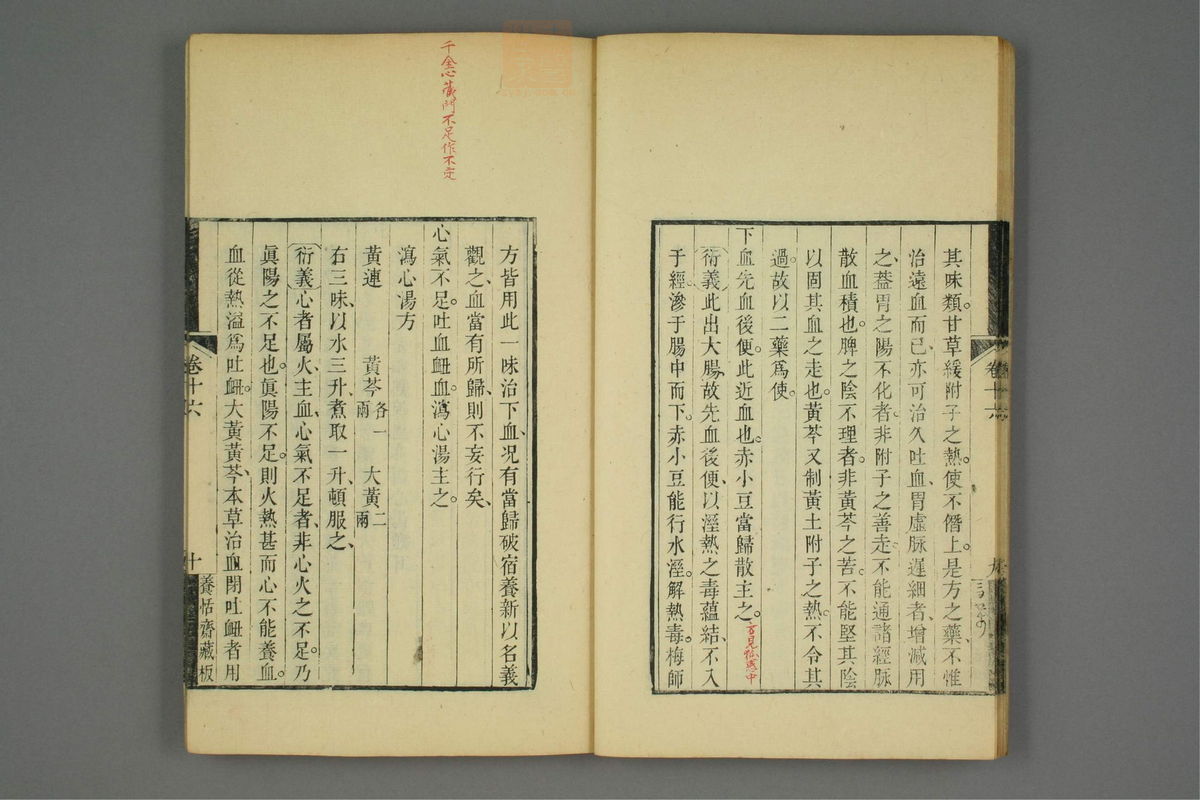 其味類甘草緩附子之熱使不僭上是方之藥不惟
治遠血而已亦可治久吐血胃虛脉遲細者增減用
之蓋胃之陽不化者非附子之善走不能通諸經脉
散血積也脾之陰不理者非黃芩之苦不能堅其陰
以固其血之走也黃芩又制黃土附子之熱不令其
過故以二藥爲使
下血先血後便此近血也赤小豆當歸散主之
方見狐惑中
衍義此出大腸故先血後便以溼熱之毒蘊結不入
于經滲于腸中而下赤小豆能行水溼解熱毒梅師
卷十六
千金心藏門不足作不定
方皆用此一味治下血况有當歸破宿養新以名義
觀之血當有所歸則不妄行矣
心氣不足吐血衄血瀉心湯主之
瀉心湯方
黃連 黃芩各一兩 大黃二兩
右三味以水三升煮取一升頓服之
衍義心者屬火主血心氣不足者非心火之不足乃
眞陽之不足也眞陽不足則火熱甚而心不能養血
血從熱溢爲吐衄大黃黃芩本草治血閉吐衄者用
卷十六 十 養恬齋藏板